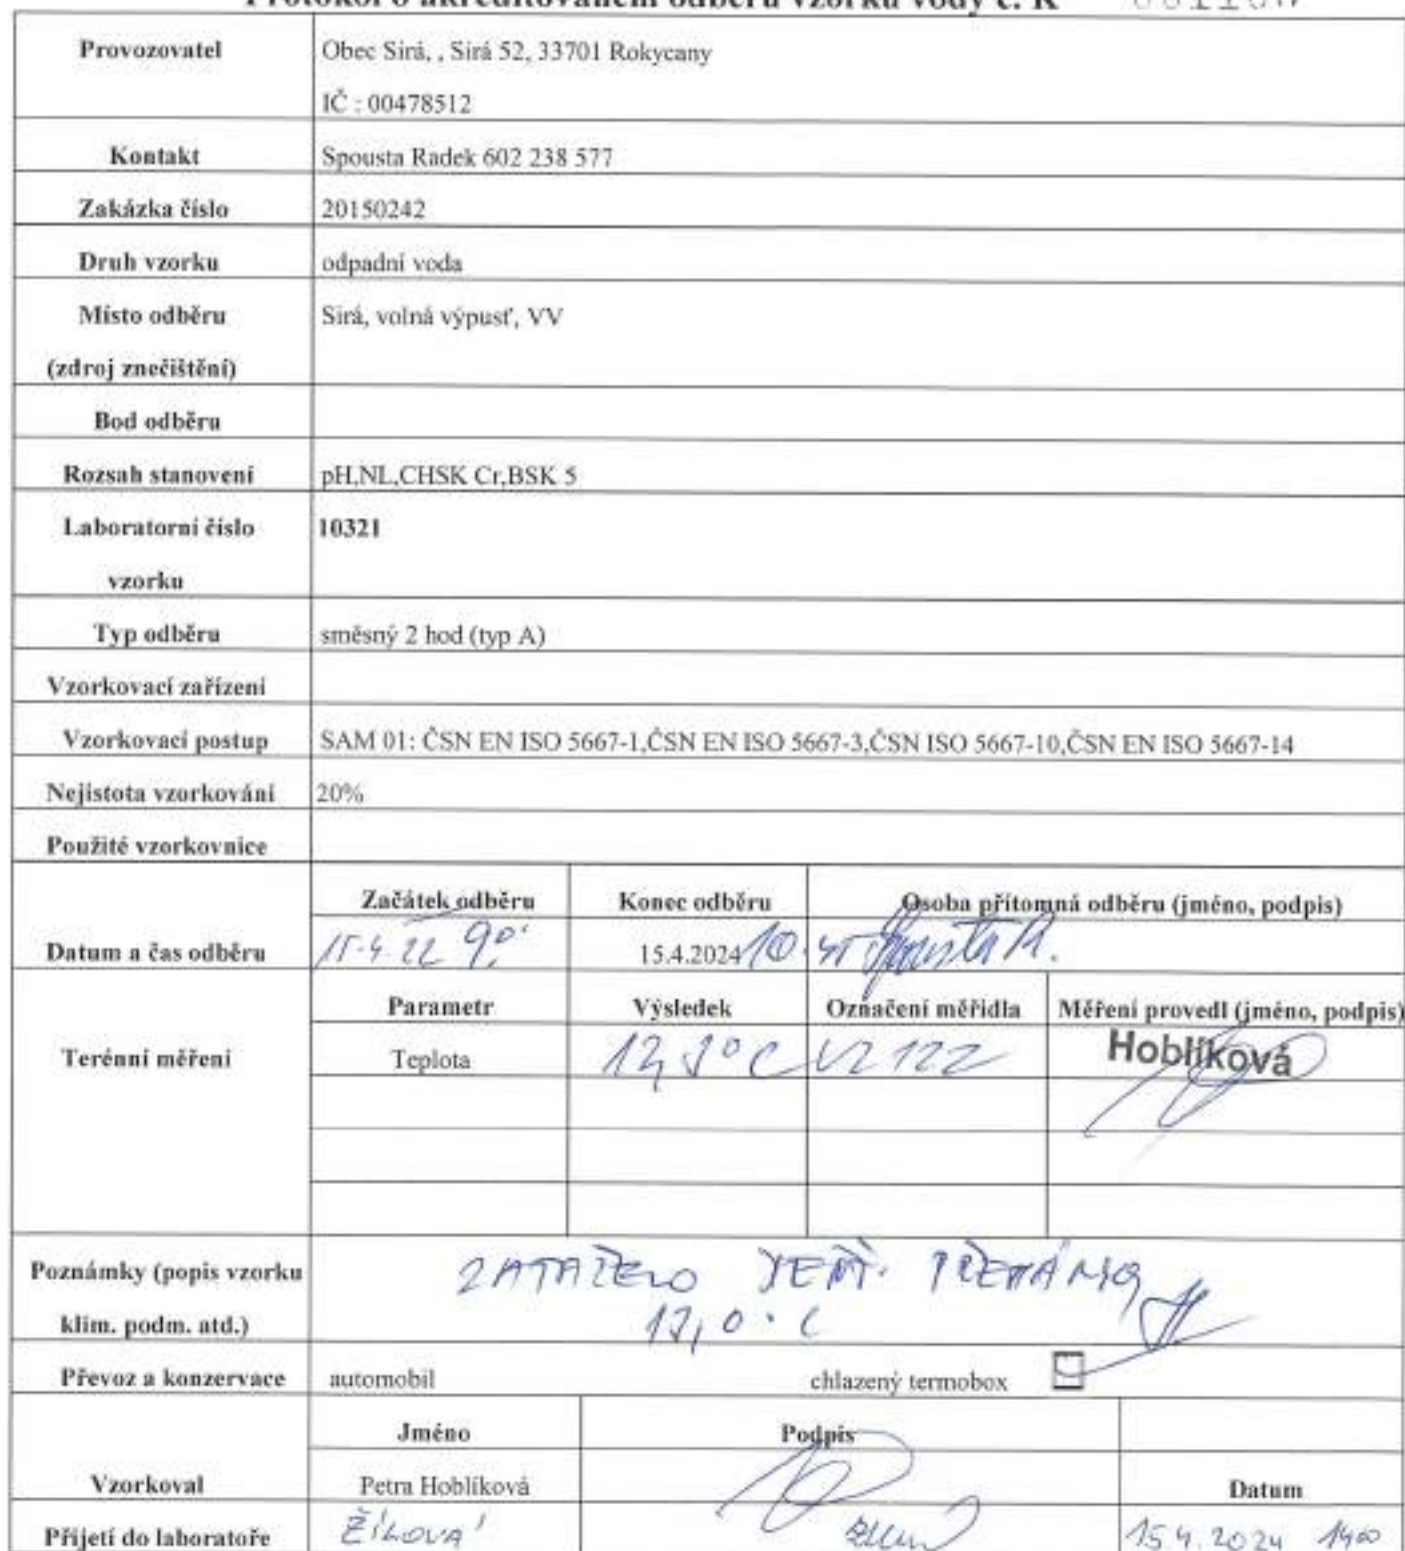 Protokol o akreditovaném odběru vzorku vody č. K
Provozovatel
Obec Sirá, , Sirá 52, 33701 Rokycany
IČ : 00478512
Kontakt
Spousta Radek 602 238 577
Zakázka číslo
20150242
Druh vzorku
odpadní voda
Místo odběru
(zdroj znečištění)
Sirá, volná výpusť, VV
Bod odběru
Rozsah stanovení
pH,NL,CHSK Cr,BSK 5
Laboratorní číslo
vzorku
10321
Typ odběru
směsný 2 hod (typ A)
Vzorkovací zařízení
Vzorkovací postup
SAM 01: ČSN EN ISO 5667-1,ČSN EN ISO 5667-3,ČSN ISO 5667-10,ČSN EN ISO 5667-14
Nejistota vzorkování
20%
Použité vzorkovnice
Začátek odběru Konec odběru Osoba přítomná odběru (jméno, podpis)
Datum a čas odběru
15.4.2024 10.45
Parametr Výsledek Označení měřidla Měření provedl (jméno, podpis)
Terénní měření
Teplota °C VZ 122 Hoblíková
Poznámky (popis vzorku
klim. podm. atd.)
ZATAŽENO DEŠŤ. PŘEHÁŇKY
Převoz a konzervace
automobil chlazený termobox
Jméno Podpis
Vzorkoval
Petra Hoblíková
Datum
Přijetí do laboratoře
15.4.2024 1400